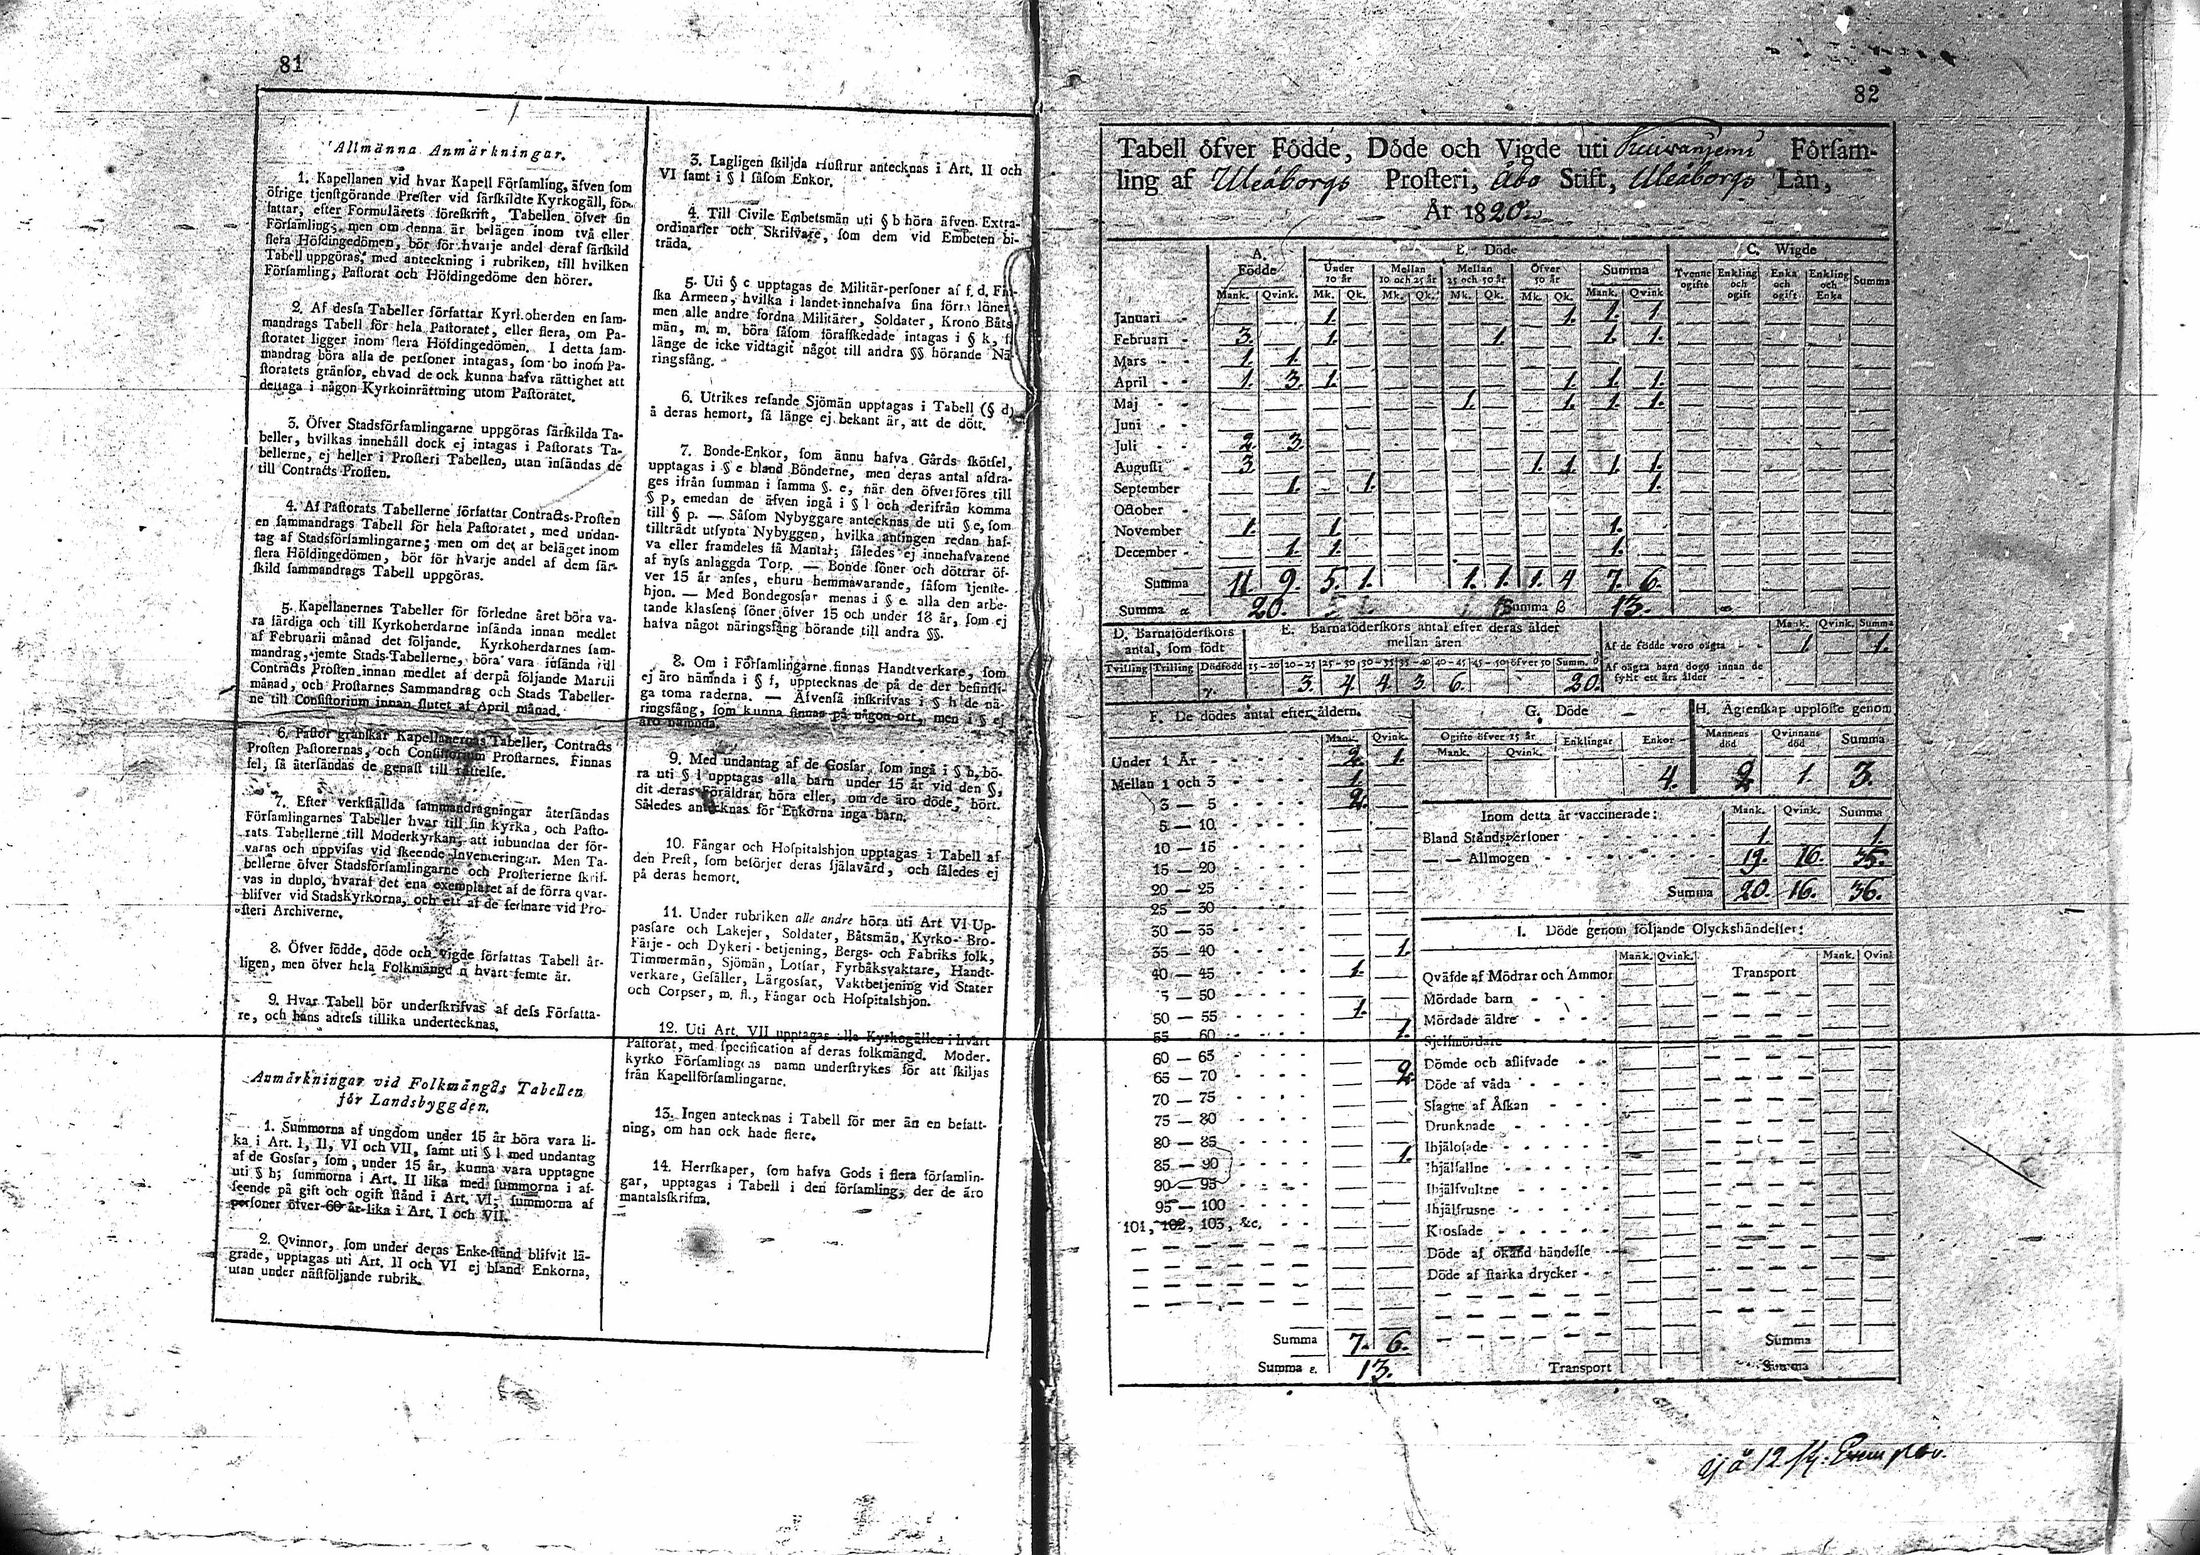 81
Allmänna Anmärkningar.
1. Kapellanen vid hvar Kapell Församling, äfven som
öfrige tjenstgörande Prester vid särskildte Kyrkogäll, för-
fattar, efter Formulärets föreskrift, Tabellen öfver sin
Församling; men om denna är belägen inom två eller
flera Höfdingedömen, bör för hvarje andel deraf särskild
Tabell uppgöras, med anteckning i rubriken, till hvilken
Församling, Pastorat och Höfdingedöme den hörer.
2. Af dessa Tabeller författar Kyrkoherden en sam-
mandrags Tabell för hela Pastoratet, eller flera, om Pa-
storatet ligger inom flera Höfdingedömen. I detta sam-
mandrag böra alla de personer intagas, som bo inom Pa-
storatets gränsor, ehvad de ock kunna hafva rättighet att
deltaga i någon Kyrkoinrättning utom Pastoratet.
3. Öfver Stadsförsamlingarne uppgöras särskilda Ta-
beller, hvilkas innehåll dock ej intagas i Pastorats Ta-
bellerne, ej heller i Prosteri Tabellen, utan insändas de
till Contracts Prosten.
4. Af Pastorats Tabellerne författar Contracts-Prosten
en sammandrags Tabell för hela Pastoratet, med undan-
tag af Stadsförsamlingarne; men om det är beläget inom
flera Höfdingedömen, bör för hvarje andel af dem sär-
skild sammandrags Tabell uppgöras.
5. Kapellanernes Tabeller för förledne året böra va-
ra färdiga och till Kyrkoherdarne insända innan medlet
af Februarii månad det följande. Kyrkoherdarnes sam-
mandrag, jemte Stads-Tabellerne, böra vara insända till
Contracts Prosten innan medlet af derpå följande Martii
månad, och Prostarnes Sammandrag och Stads Tabeller-
ne till Consistorium innan slutet af April månad.
6. Pastor granskar Kapellanernas Tabeller, Contracts
Prosten Pastorernas, och Consistorium Prostarnes. Finnas
fel, så återsändas de genast till rättelse.
7. Efter verkställda sammandragningar återsändas
Församlingarnes Tabeller hvar till sin kyrka, och Pasto-
rats Tabellerne till Moderkyrkan, att inbundna der för-
varas och uppvisas vid skeende Inventeringar. Men Ta-
bellerne öfver Stadsförsamlingarne och Prosterierne skrif-
vas in duplo, hvaraf det ena exemplaret af de förra qvar-
blifver vid Stadskyrkorna, och ett af de sednare vid Pro-
steri Archiverne.
8. Öfver födde, döde och vigde författas Tabell år-
ligen, men öfver hela Folkmängden hvart femte år.
9. Hvar Tabell bör underskrifvas af dess Författa-
re, och hans adress tillika undertecknas.
Anmärkningar vid Folkmängds Tabellen
för Landsbyggden.
1. Summorna af ungdom under 15 år böra vara li-
ka i Art. I, II, VI och VII, samt uti § l med undantag
af de Gossar, som, under 15 år, kunna vara upptagne
uti § h; summorna i Art. II lika med summorna i af-
seende på gift och ogift stånd i Art. VI; summorna af
personer öfver 60 år lika i Art. I och VII.
2. Qvinnor, som under deras Enke-stånd blifvit lä-
grade, upptagas uti Art. II och VI ej bland Enkorna,
utan under nästföljande rubrik.
3. Lagligen skiljda Hustrur antecknas i Art. II och
VI samt i § l såsom Enkor.
4. Till Civile Embetsmän uti § b höra äfven Extra-
ordinarier och Skrifvare, som dem vid Embeten bi-
träda.
5. Uti § c upptagas de Militär-personer af f. d. Fin-
ska Armeen, hvilka i landet innehafva sina förra löner,
men alle andre fordna Militärer, Soldater, Krono Båts
män, m. m. böra såsom förafskedade intagas i § k, så
länge de icke vidtagit något till andra §§ hörande Nä-
ringsfång.
6. Utrikes resande Sjömän upptagas i Tabell (§ d)
å deras hemort, så länge ej bekant är, att de dött.
7. Bonde-Enkor, som ännu hafva Gårds skötsel,
upptagas i § e bland Bönderne, men deras antal afdra-
ges ifrån summan i samma §. e, när den öfverföres till
§ p, emedan de äfven ingå i § l och derifrån komma
till § p. — Såsom Nybyggare antecknas de uti § e, som
tillträdt utsynta Nybyggen, hvilka antingen redan haf-
va eller framdeles få Mantal; således ej innehafvarene
af nyss anlaggda Torp. — Bonde söner och döttrar öf-
ver 15 år anses, ehuru hemmavarande, såsom tjenste-
hjon. — Med Bondegossar menas i § e alla den arbe-
tande klassens söner öfver 15 och under 18 år, som ej
hafva något näringsfång hörande till andra §§.
8. Om i Församlingarne finnas Handtverkare, som
ej äro nämnda i § f, upptecknas de på de der befintli-
ga toma raderna. — Äfvenså inskrifvas i § h de nä-
ringsfång, som kunna finnas på någon ort, men i § ej
äro nämnda.
9. Med undantag af de Gossar, som ingå i § h, bö-
ra uti § l upptagas alla barn under 15 år vid den §,
dit deras Föräldrar höra eller, om de äro döde, hört.
Således antecknas för Enkorna inga barn.
10. Fångar och Hospitalshjon upptagas i Tabell af
den Prest, som besörjer deras själavård, och således ej
på deras hemort.
11. Under rubriken alle andre höra uti Art VI Up-
passare och Lakejer, Soldater, Båtsmän, Kyrko- Bro-
Färje- och Dykeri-betjening, Bergs- och Fabriks folk,
Timmermän, Sjömän, Lotsar, Fyrbåksvaktare, Handt-
verkare, Gesäller, Lärgossar, Vaktbetjening vid Stater
och Corpser, m. fl., Fångar och Hospitalshjon.
12. Uti Art. VII upptagas alla Kyrkogällen i hvart
Pastorat, med specification af deras folkmängd. Moder-
kyrko Församlingens namn understrykes för att skiljas
från Kapellförsamlingarne.
13. Ingen antecknas i Tabell för mer än en befatt-
ning, om han ock hade flere.
14. Herrskaper, som hafva Gods i flera församlin-
gar, upptagas i Tabell i den församling, der de äro
mantalsskrifna.
82
Tabell öfver Födde, Döde och Vigde uti Församling
ling af Uleåborgs Prosteri, Åbo Stift, Uleåborgs Län,
År 1820
A. Födde E. Döde C. Wigde
Under 10 år Mellan 10 och 25 år Mellan 25 och 50 år Öfver 50 år Summa Tvenne ogifte Enkling och ogift Enka och ogift Enkling och Enka Summa
Mank. Qvink. Mk. Qk. Mk. Qk. Mk. Qk. Mk. Qk. Mank. Qvink
Januari 1. 1. 1. 1
Februari 3. 1. 1. 1. 1.
Mars 1. 1.
April 1. 3. 1. 1. 1. 1.
Maj 1. 1. 1. 1.
Juni
Juli 2 3.
Augusti 3 1. 1. 1. 1.
September 1. 1. 1.
October
November 1. 1. 1.
December 1. 1. 1.
Summa 11. 9. 5. 1. 1. 1. 1. 4 7. 6.
Summa α 20. Summa β 13.
D. Barnaföderskors antal, som födt
Tvilling Trilling Dödfödd
E. Barnaföderskors antal efter deras ålder mellan åren
15-20 20-25 25-30 30-35 35-40 40-45 45-50 öfver 50 Summ.
3. 4. 4. 3. 6. 20.
Mank. Qvink. Summa
Af de födde voro oägta 1 1.
Af oägta barn dogo innan de
fyllt ett års ålder
F. De dödes antal efter åldern.
Mank. Qvink.
Under 1 År 2. 1.
Mellan 1 och 3 1.
3 — 5 2.
5 — 10
10 — 15
15 — 20
20 — 25
25 — 30
30 — 35
35 — 40 1.
40 — 45 1.
5 — 50
50 — 55 1.
55 60 1.
60 — 65
65 — 70 2
70 — 75
75 — 80
80 — 85
85 — 90 1.
90 — 95
95 — 100
101, 102, 103, &c.
Summa 7. 6.
Summa ε. 13.
G. Döde
Ogifte öfver 15 år Enklingar Enkor
Mank. Qvink.
4.
H. Ägtenskap upplöste genom
Mannens död Qvinnans död Summa
2 1. 3.
Inom detta år vaccinerade: Mank. Qvink. Summa
Bland Ståndspersoner 1. 1.
— — Allmogen 19. 16. 35.
Summa 20. 16. 36.
I. Döde genom följande Olyckshändelser:
Mank. Qvink. Mank. Qvink
Qväfde af Mödrar och Ammor Transport
Mördade barn
Mördade äldre
Sjelfmördare
Dömde och aflifvade
Döde af våda
Slagne af Åskan
Drunknade
Ihjälosade
Ihjälfallne
Ihjälsvultne
Ihjälfrusne
Krossade
Döde af okänd händelse
Döde af starka drycker
Summa
Transport Summa
à 12